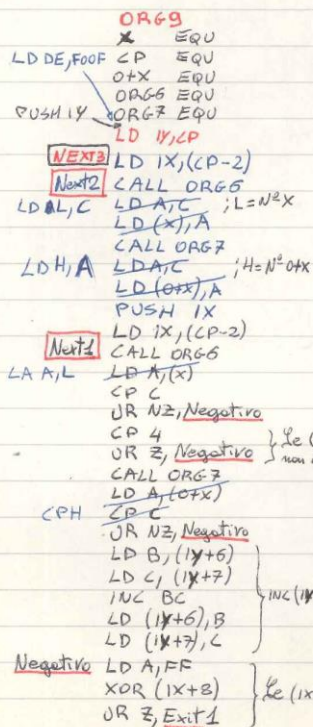 ORG9
X EQU
LD DE,F00F CP EQU
0+X EQU
ORG6 EQU
PUSH IY ORG7 EQU
LD IY,CP
NEXT3 LD IX,(CP-2)
Next2 CALL ORG6
LD L,C LD A,C ;L=N°X
LD (X),A
CALL ORG7
LD H,A LD A,C ;H=N°0+X
LD (0+X),A
PUSH IX
LD IX,(CP-2)
Next1 CALL ORG6
LA A,L LD A,(X)
CP C
JR NZ,Negativo
CP 4
JR Z,Negativo } Se (
non
CALL ORG7
LD A,(0+X)
CPH CP C
JR NZ,Negativo
LD B,(IY+6)
LD C,(IY+7)
INC BC } INC(IY
LD (IY+6),B
LD (IY+7),C
Negativo LD A,FF
XOR (IX+8) } Se (IX
JR Z,Exit1